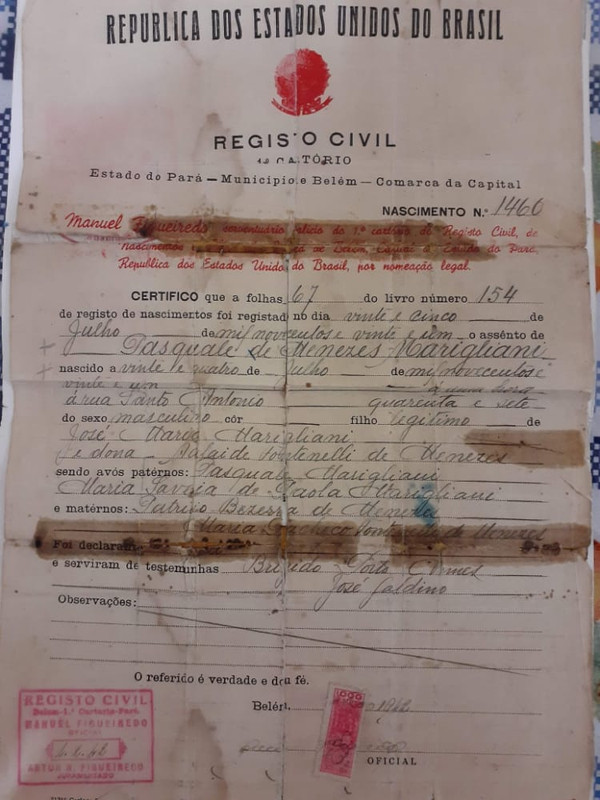 REPUBLICA DOS ESTADOS UNIDOS DO BRASIL
REGISTO CIVIL
Estado do Pará — Municipio e Belém — Comarca da Capital
NASCIMENTO N.º 1460
Manuel Figueiredo, serventuário vitalicio do 1.º cartório do Registo Civil, de
Nascimentos de Belém, Capital do Estado do Pará,
Republica dos Estados Unido do Brasil, por nomeação legal.
CERTIFICO que a folhas 67 do livro número 154
de registo de nascimentos foi registado no dia vinte e cinco de
Julho de mil novecentos e vinte e um o assênto de
Pasquale de Menezes Marigliani
nascido a vinte e quatro de Julho de mil novecentos e
vinte e um á uma hora
á rua Santo Antonio quarenta e sete
do sexo masculino côr filho legitimo de
José Maria Marigliani
e dona Fontenelli de Menezes
sendo avós patérnos: Pasquale Marigliani
Maria de Paola Marigliani
e matérnos: Bezerra de Menezes
Maria Pacheco de Menezes
Foi declarante
e serviram de testeminhas Brigido Porto
José Galdino
Observações:
O referido é verdade e dou fé.
Belém,
OFICIAL
REGISTO CIVIL
Belem-1.º Cartorio-Pará
MANUEL FIGUEIREDO
OFICIAL
ARTUR N. FIGUEIREDO
JURAMENTADO